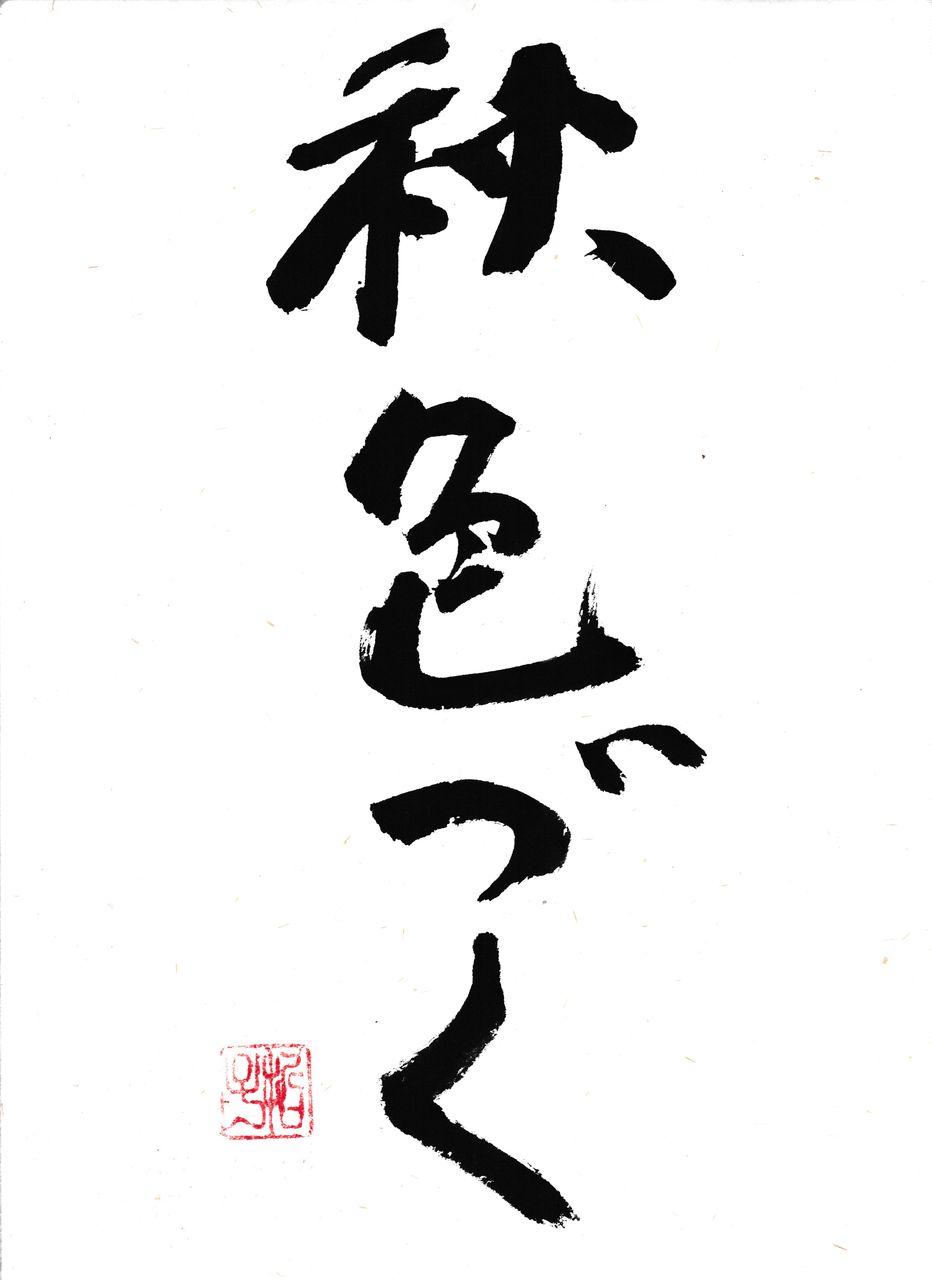 秋色づく